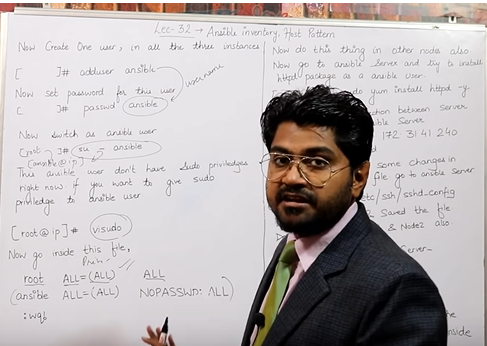 Lec-32 → Ansible inventory, Host Pattern
Now Create One user, in all the three instances
[ ]# adduser ansible
username
Now set password for this user
[ ]# passwd ansible
Now switch as ansible user
[root ]# su - ansible
[ansible@ip]
This ansible user don't have sudo priviledges
right now if you want to give sudo
priviledge to ansible user
[root@ip]# visudo
Now go inside this file,
root ALL=(ALL) ALL
(ansible ALL=(ALL) NOPASSWD: ALL)
:wq!
Now do this thing in other nodes also
Now go to ansible Server and try to install
httpd package as a ansible user.
do yum install httpd -y
between Server
Server
172.31.41.240
some changes in
file go to ansible server
etc/ssh/sshd_config
Saved the file
& Node2 also
Server
the
inside